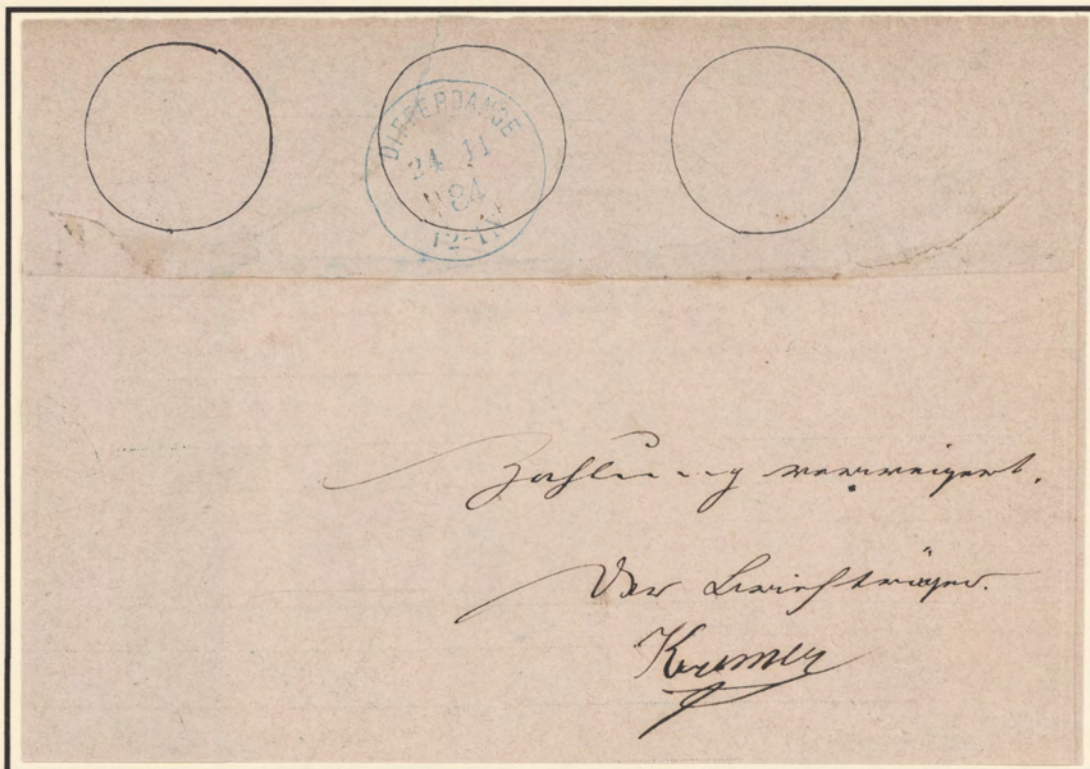 DIFFERDANGE
24 11
84
12-1N
Zahlung verweigert.
Der Briefträger.